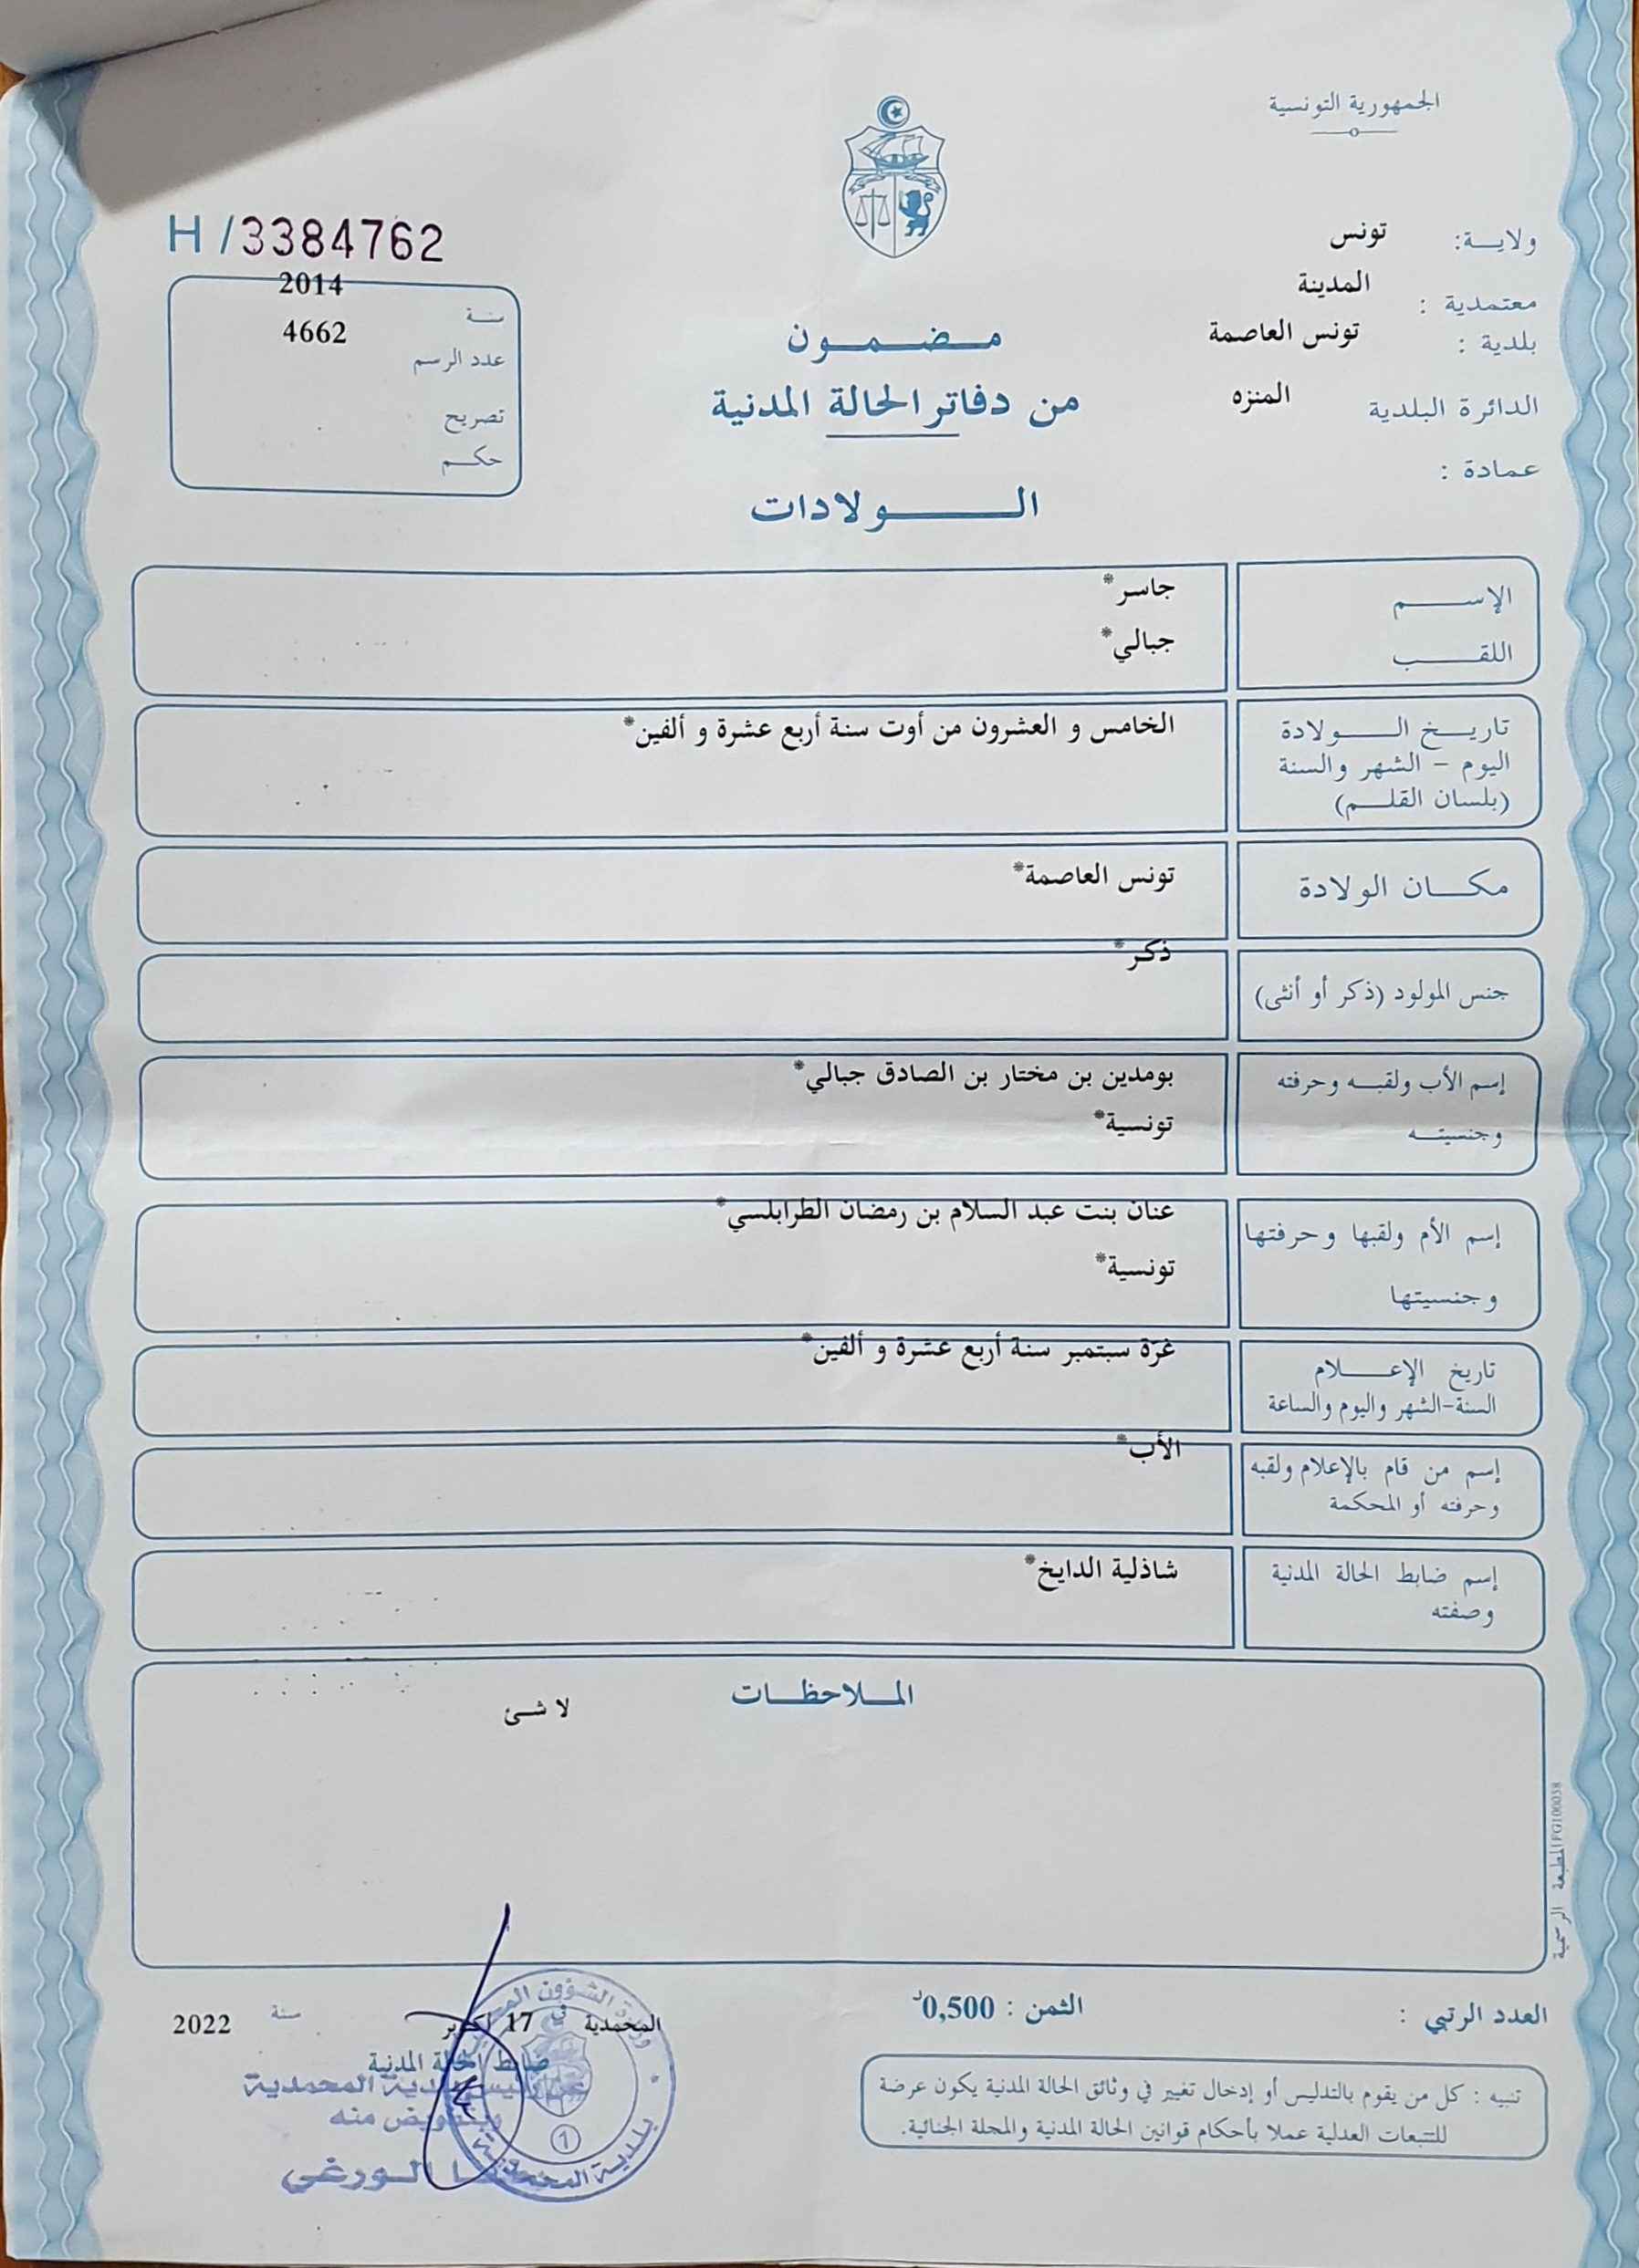 الجمهورية التونسية
ولايـــة: تونس
معتمدية : المدينة
بلدية : تونس العاصمة
الدائرة البلدية المنزه
عمادة :
H/3384762
سنة 2014
عدد الرسم 4662
تصريح
حكم
مضمون
من دفاتر الحالة المدنية
الولادات
الإسم جاسر*
اللقب جبالي*
تاريخ الولادة الخامس و العشرون من أوت سنة أربع عشرة و ألفين*
اليوم - الشهر والسنة
(بلسان القلم)
مكان الولادة تونس العاصمة*
جنس المولود (ذكر أو أنثى) ذكر*
إسم الأب ولقبه وحرفته بومدين بن مختار بن الصادق جبالي*
وجنسيته تونسية*
إسم الأم ولقبها وحرفتها عنان بنت عبد السلام بن رمضان الطرابلسي*
وجنسيتها تونسية*
تاريخ الإعلام غرّة سبتمبر سنة أربع عشرة و ألفين*
السنة-الشهر واليوم والساعة
إسم من قام بالإعلام ولقبه الأب*
وحرفته أو المحكمة
إسم ضابط الحالة المدنية شاذلية الدايخ*
وصفته
الملاحظات
لا شئ
المطبعة الرسمية FG100038
العدد الرتبي :
الثمن : 0,500د
المحمدية في 17 أكتوبر سنة 2022
ضابط الحالة المدنية
عن رئيس بلدية المحمدية
وبتفويض منه
الورغي
بلدية المحمدية
1
تنبيه : كل من يقوم بالتدليس أو إدخال تغيير في وثائق الحالة المدنية يكون عرضة
للتتبعات العدلية عملا بأحكام قوانين الحالة المدنية والمجلة الجنائية.